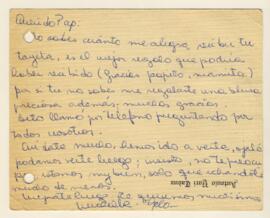 Querido Pap:
No sabes cuánto me alegra recibir tu
tarjeta, es el mejor regalo que podria
haber recibido (gracias papito, mamita)
por si tu no sabes me regalaste una blusa
preciosa además, muchas gracias.
llamo por telefono preguntando por
todos nosotros.
Cuidate mucho, hemos ido a verte,
podamos verte luego; no te preocu
estamos muy bien, solo que echandote
mucho de menos.
luego, te queremos muchisimo
Antonio